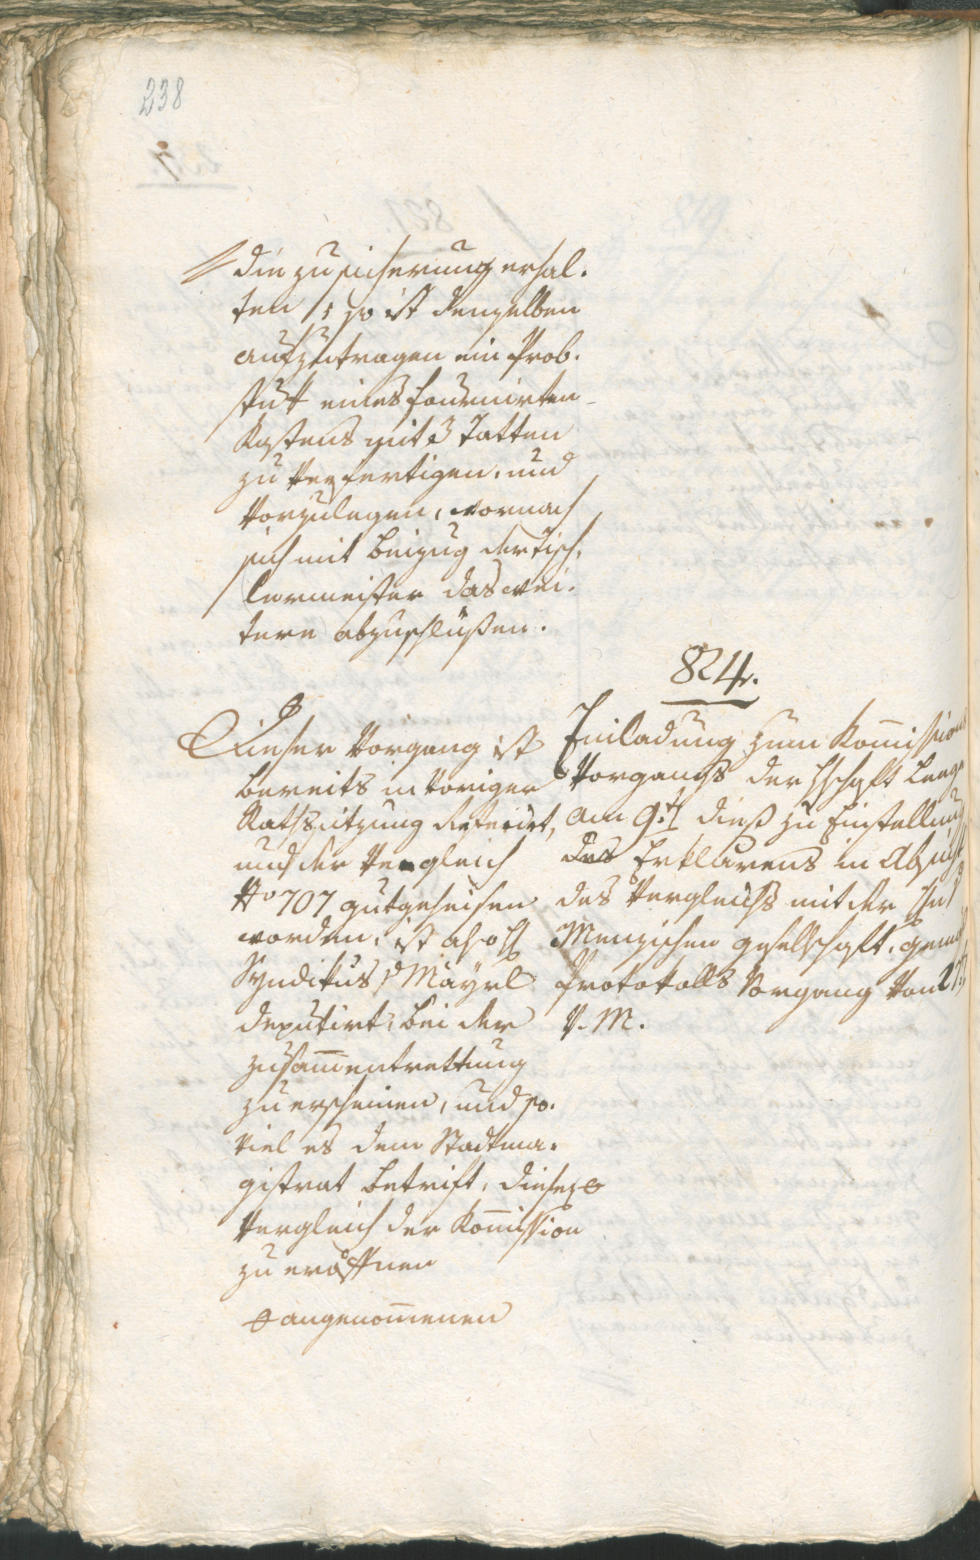 238
die zusicherung erhal.
ten, so ist denselben
aufzutragen ein Prob.
stuk eines fournirten
Kastens mit 3 Tatten
zu verfertigen, und
vorzulegen, wornach
sich mit beizug der Tisch.
lermeister das wei.
tere abzuschlüßen.
824.
Dieser Vorgang ist
bereits in voriger
Rathssitzung referirt,
und der Vergleich
No 707 gutgeheisen
worden, ist also H
Syndikus v Mayrl
deputirt, bei der
zusam̅entrettung
zu erscheinen, und so.
viel es dem Stadtma.
gistrat betrift, diesen
Vergleich der Kom̅ission
zu eröffnen
angenom̅enen
Einladung zum Kom̅issions
Vorgangs der Hschaft
am 9t dieß zu Einstellung
des Erklärens in Absicht
des Vergleichs mit der
Menzischen gesellschaft,
Protokolls Vorgang von 27
v. M.